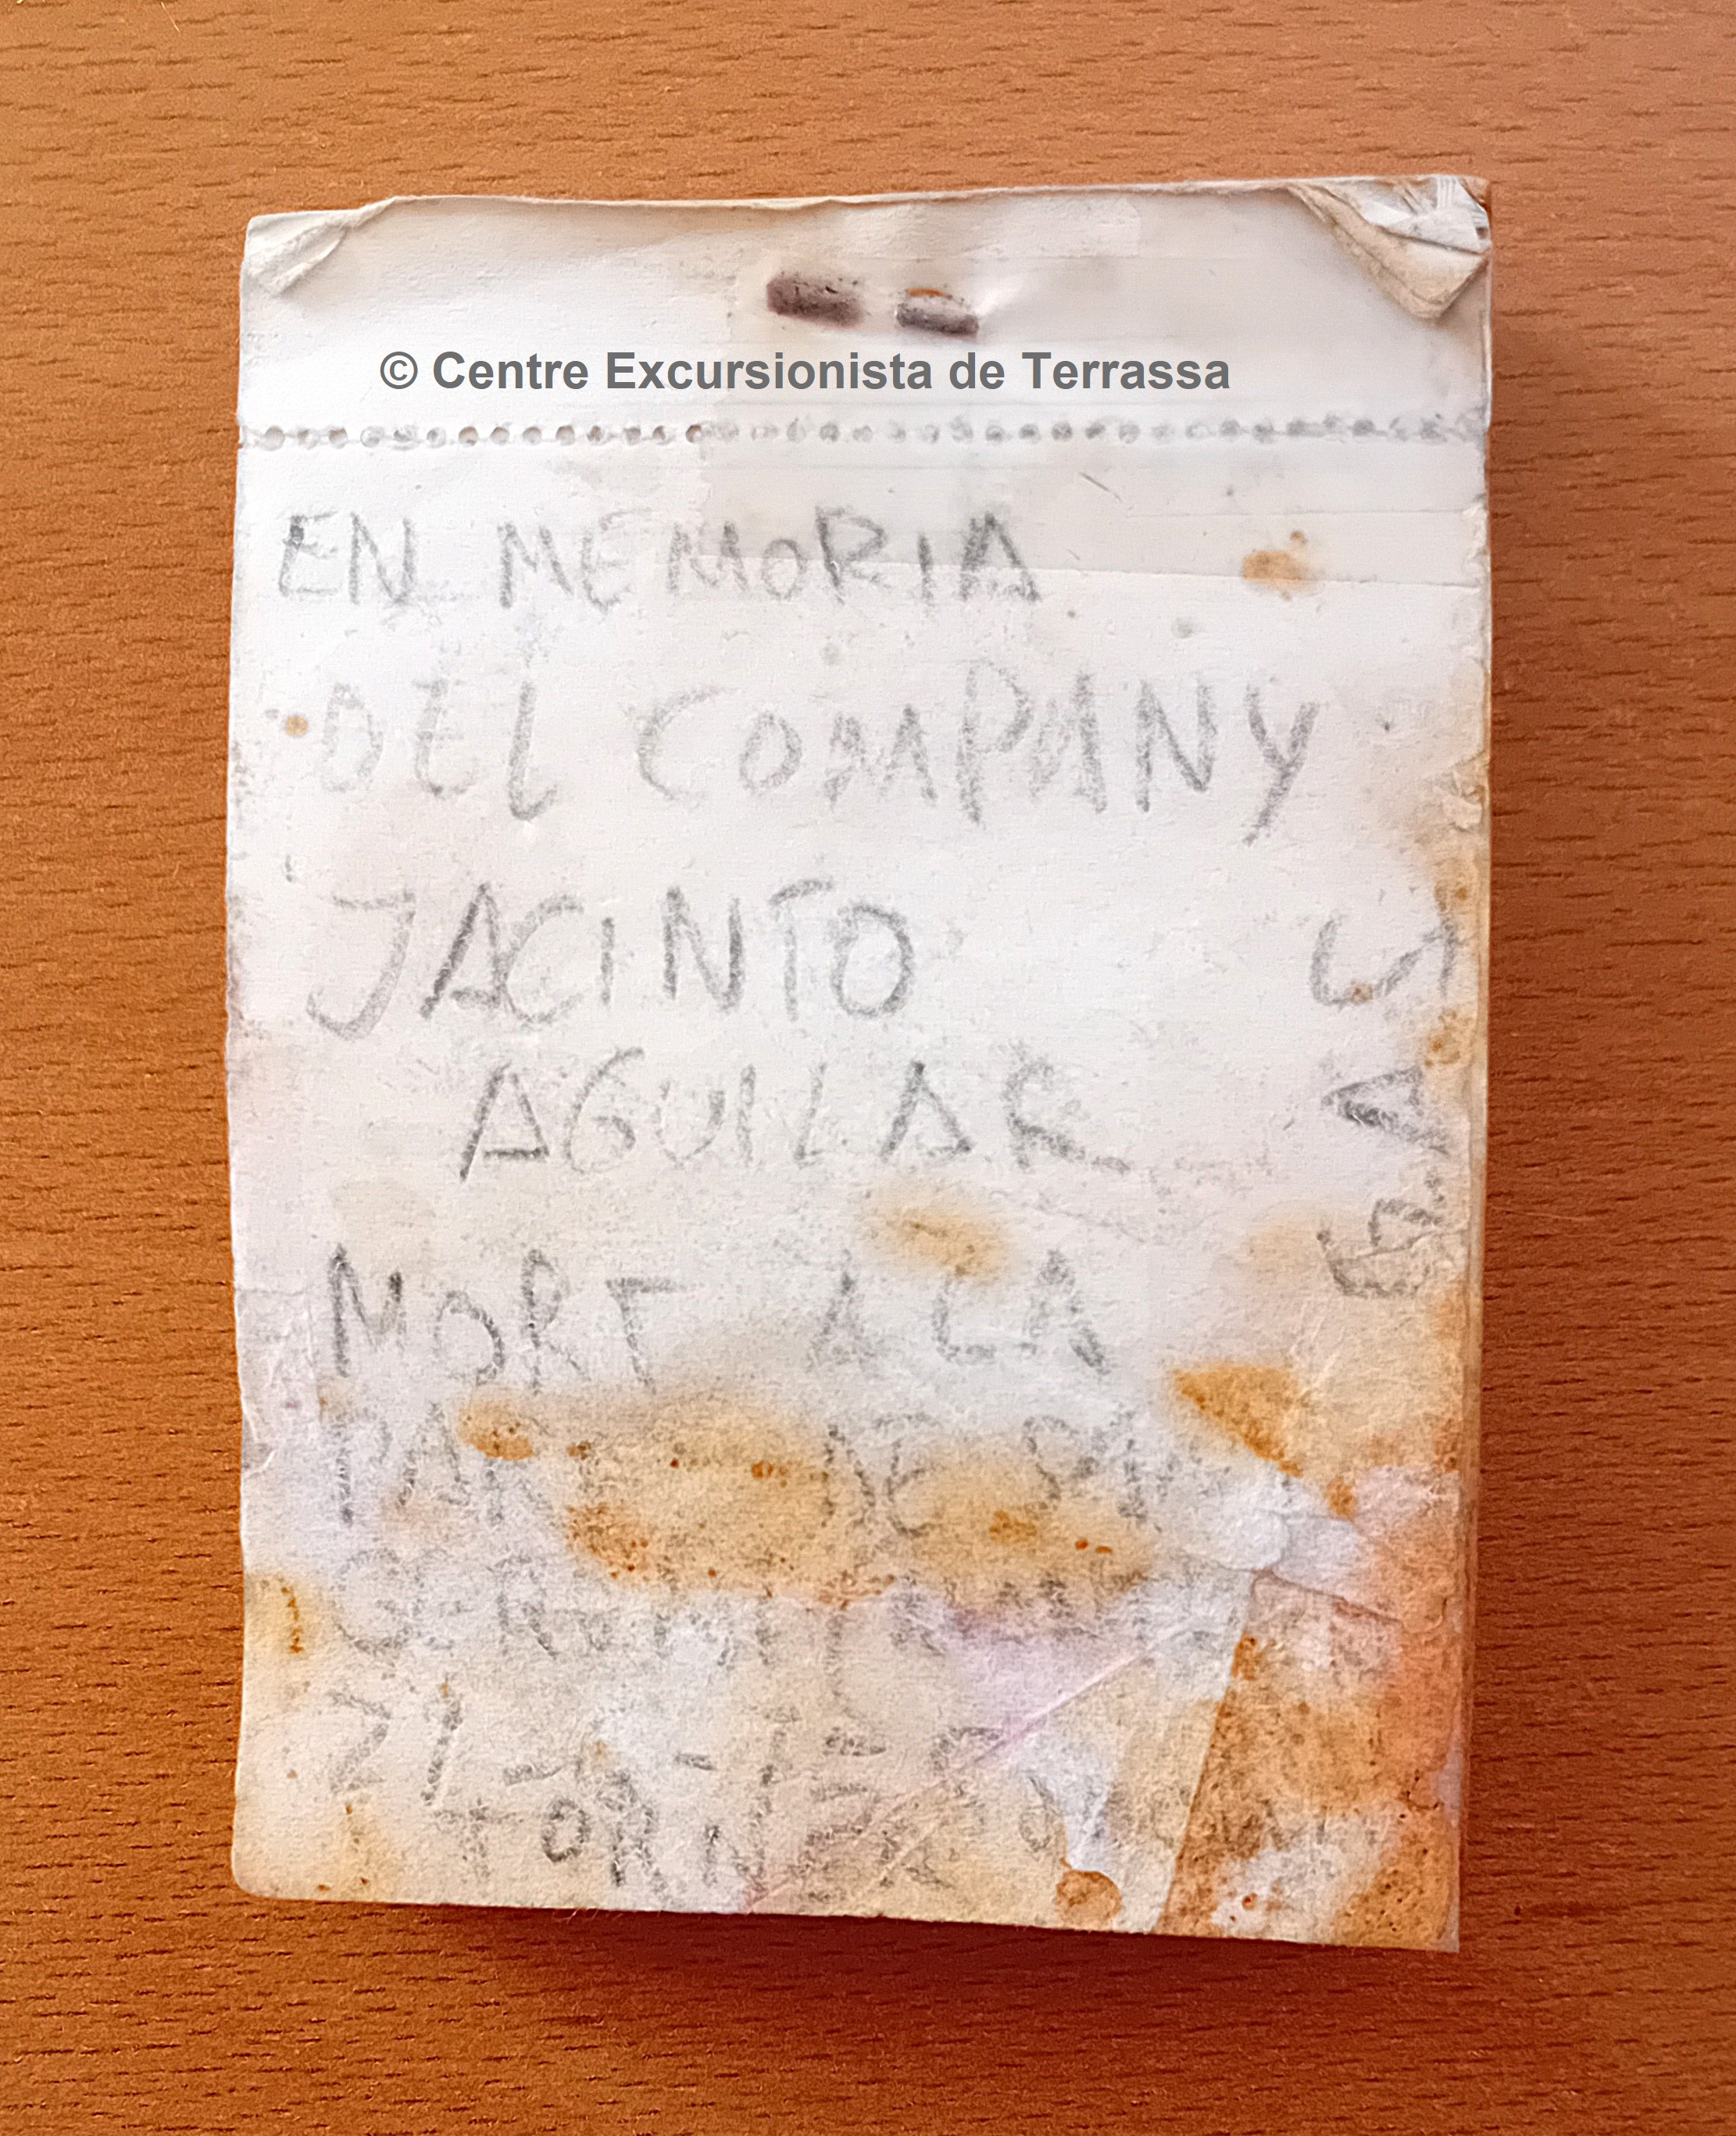 © Centre Excursionista de Terrassa
EN MEMORIA
DEL COMPANY
JACINTO
AGUILAR
MORT A LA
PARET DE
TORNER
G.A.S